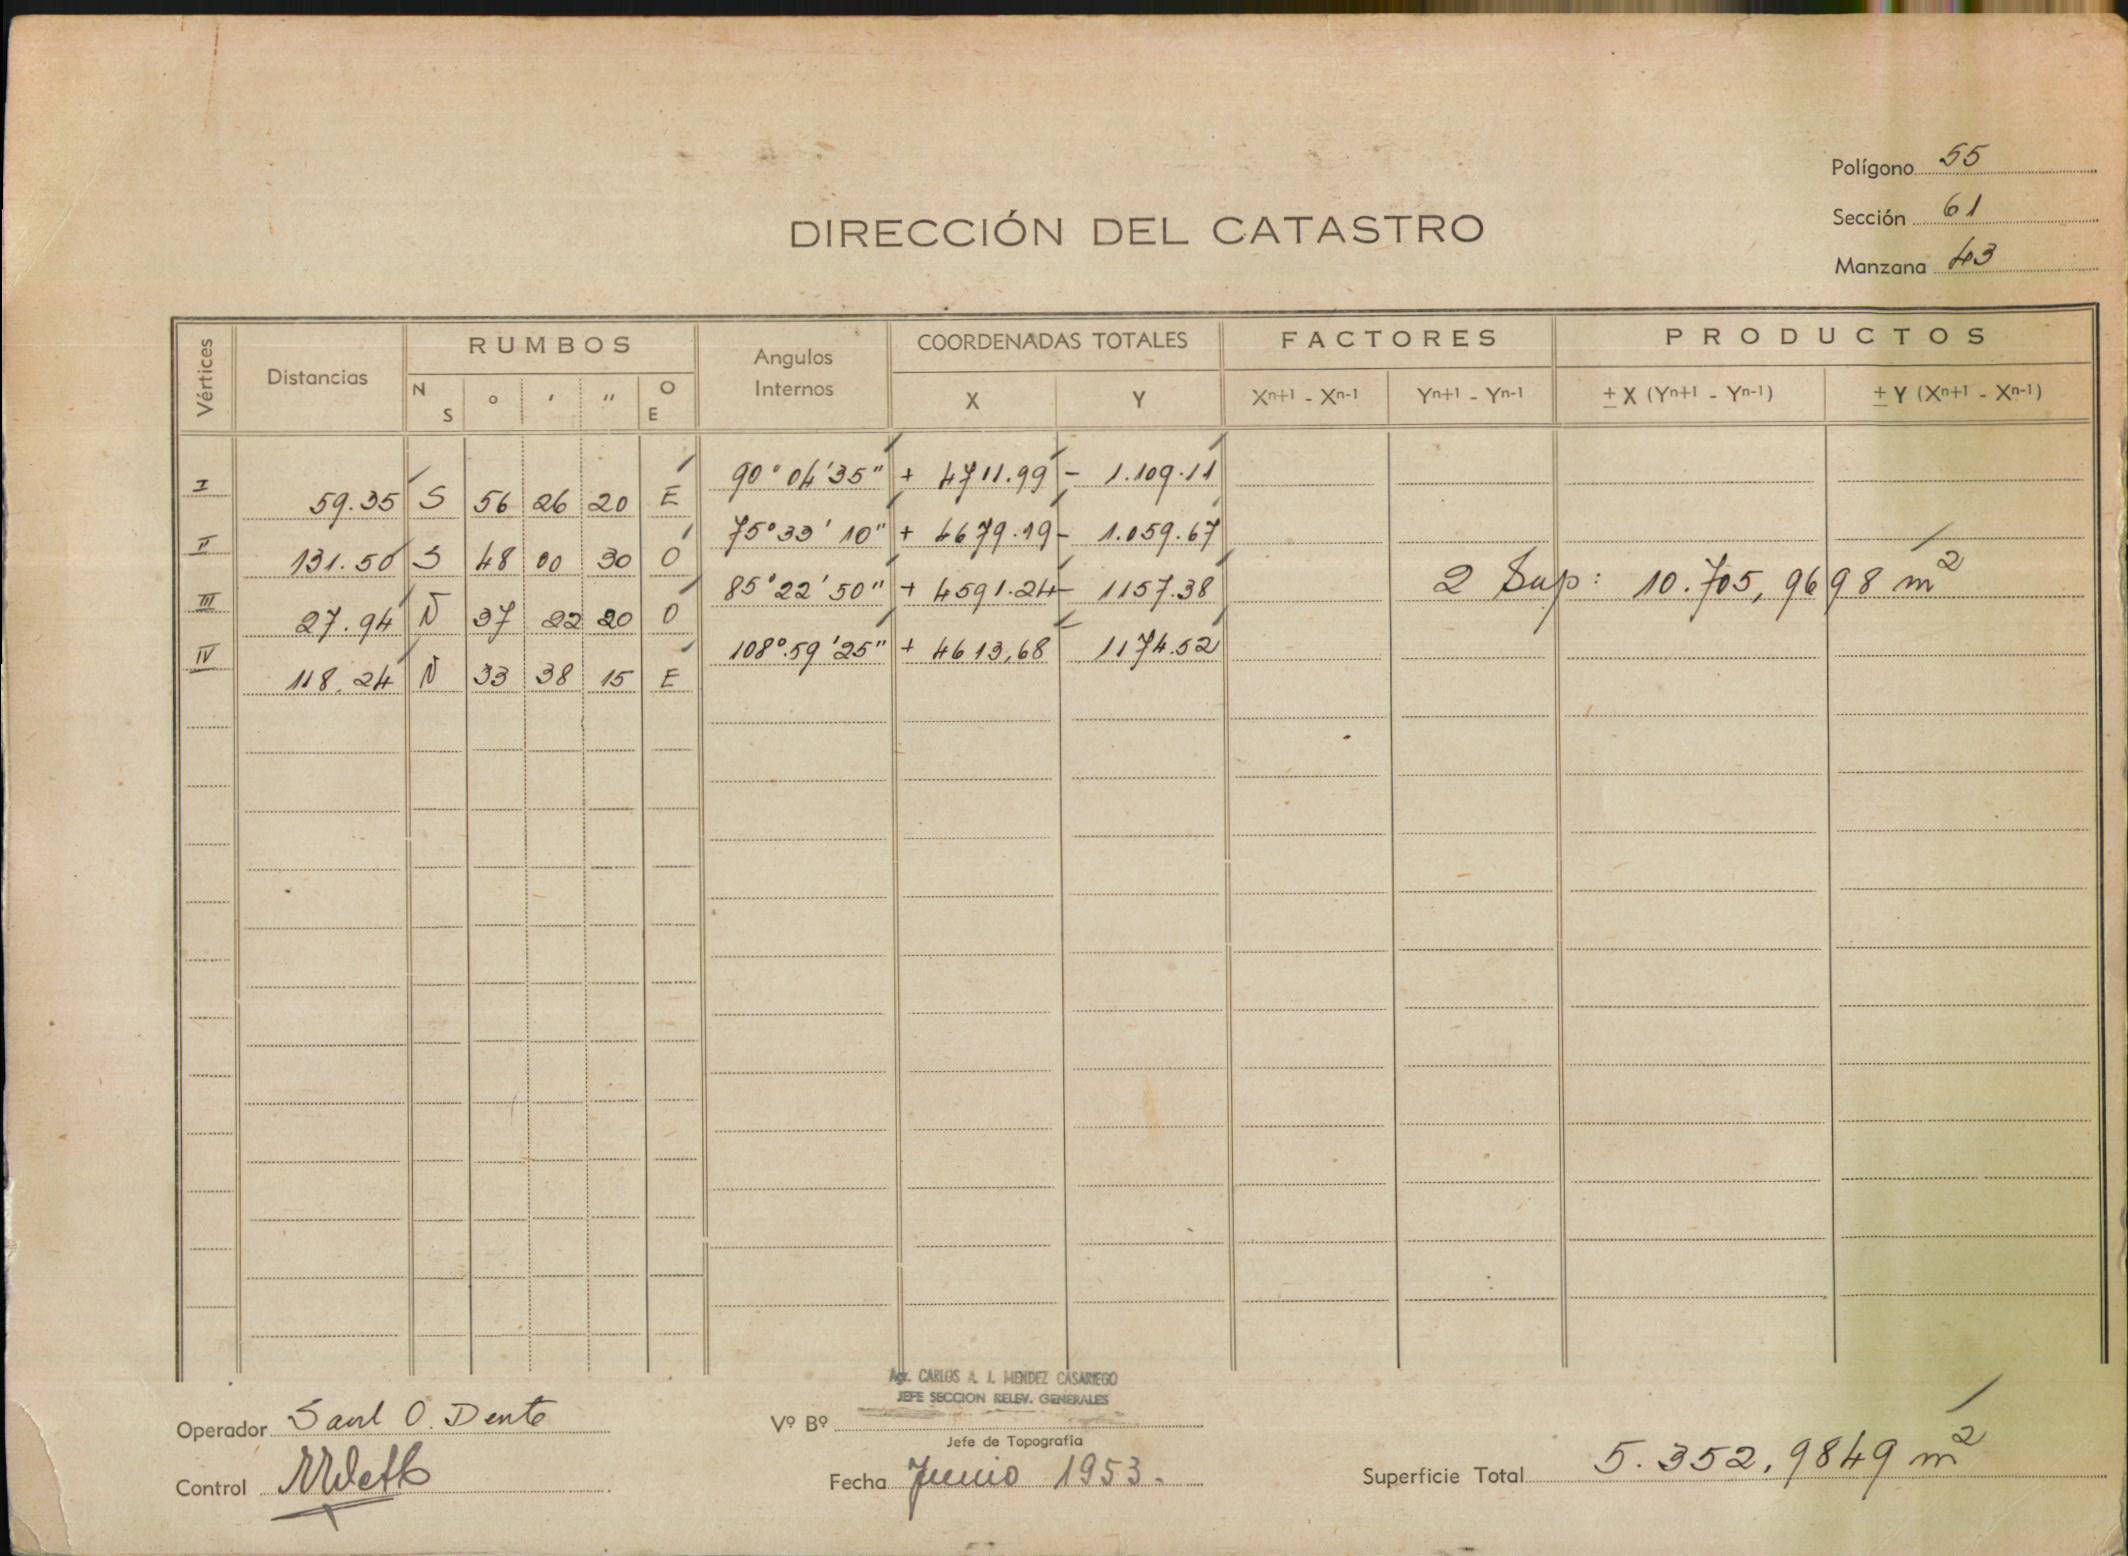 Polígono 55
Sección 61
Manzana 43
DIRECCIÓN DEL CATASTRO
Vértices Distancias RUMBOS Angulos Internos COORDENADAS TOTALES FACTORES PRODUCTOS
N S ° ' " O E X Y Xn+1 - Xn-1 Yn+1 - Yn-1 ± X (Yn+1 - Yn-1) ± Y (Xn+1 - Xn-1)
I 90° 04' 35" + 4711.99 - 1.109.11
59.35 S 56 26 20 E
II 75° 33' 10" + 4679.19 - 1.059.67
131.50 S 48 00 30 O
III 85° 22' 50" + 4591.24 - 1157.38
2 Sup: 10.705,9698 m²
27.94 N 37 22 20 O
IV 108°.59'25" + 4613,68 - 1174.52
118.24 N 33 38 15 E
Agr. CARLOS A. J. MENDEZ CASARIEGO
JEFE SECCION RELEV. GENERALES
Operador Saul O. Dente
Vº Bº
Jefe de Topografía
Control
Fecha Junio 1953.
Superficie Total 5.352,9849 m²